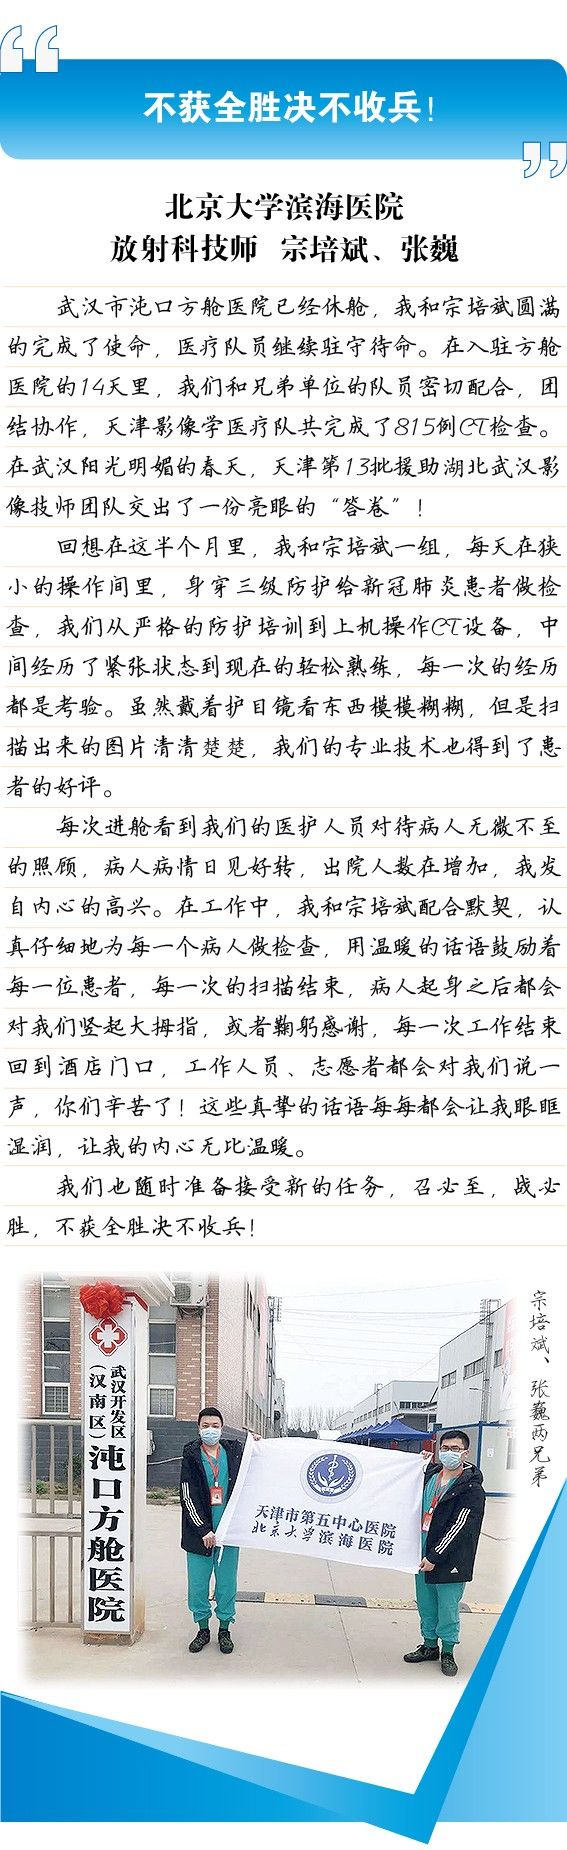 不获全胜决不收兵！
北京大学滨海医院
放射科技师 宗培斌、张巍
武汉市沌口方舱医院已经休舱，我和宗培斌圆满
的完成了使命，医疗队员继续驻守待命。在入驻方舱
医院的14天里，我们和兄弟单位的队员密切配合，团
结协作，天津影像学医疗队共完成了815例CT检查。
在武汉阳光明媚的春天，天津第13批援助湖北武汉影
像技师团队交出了一份亮眼的“答卷”！
回想在这半个月里，我和宗培斌一组，每天在狭
小的操作间里，身穿三级防护给新冠肺炎患者做检
查，我们从严格的防护培训到上机操作CT设备，中
间经历了紧张状态到现在的轻松熟练，每一次的经历
都是考验。虽然戴着护目镜看东西模模糊糊，但是扫
描出来的图片清清楚楚，我们的专业技术也得到了患
者的好评。
每次进舱看到我们的医护人员对待病人无微不至
的照顾，病人病情日见好转，出院人数在增加，我发
自内心的高兴。在工作中，我和宗培斌配合默契，认
真仔细地为每一个病人做检查，用温暖的话语鼓励着
每一位患者，每一次的扫描结束，病人起身之后都会
对我们竖起大拇指，或者鞠躬感谢，每一次工作结束
回到酒店门口，工作人员、志愿者都会对我们说一
声，你们辛苦了！这些真挚的话语每每都会让我眼眶
湿润，让我的内心无比温暖。
我们也随时准备接受新的任务，召必至，战必
胜，不获全胜决不收兵！
宗培斌、张巍两兄弟
武汉开发区
（汉南区）
沌口方舱医院
天津市第五中心医院
北京大学滨海医院